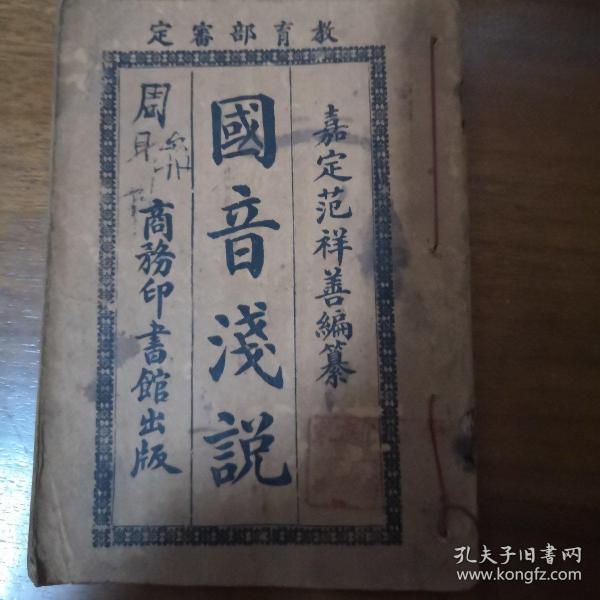 教育部審定
嘉定范祥善編纂
國音淺説
商務印書館出版
周
孔夫子旧书网
www.kongfz.com